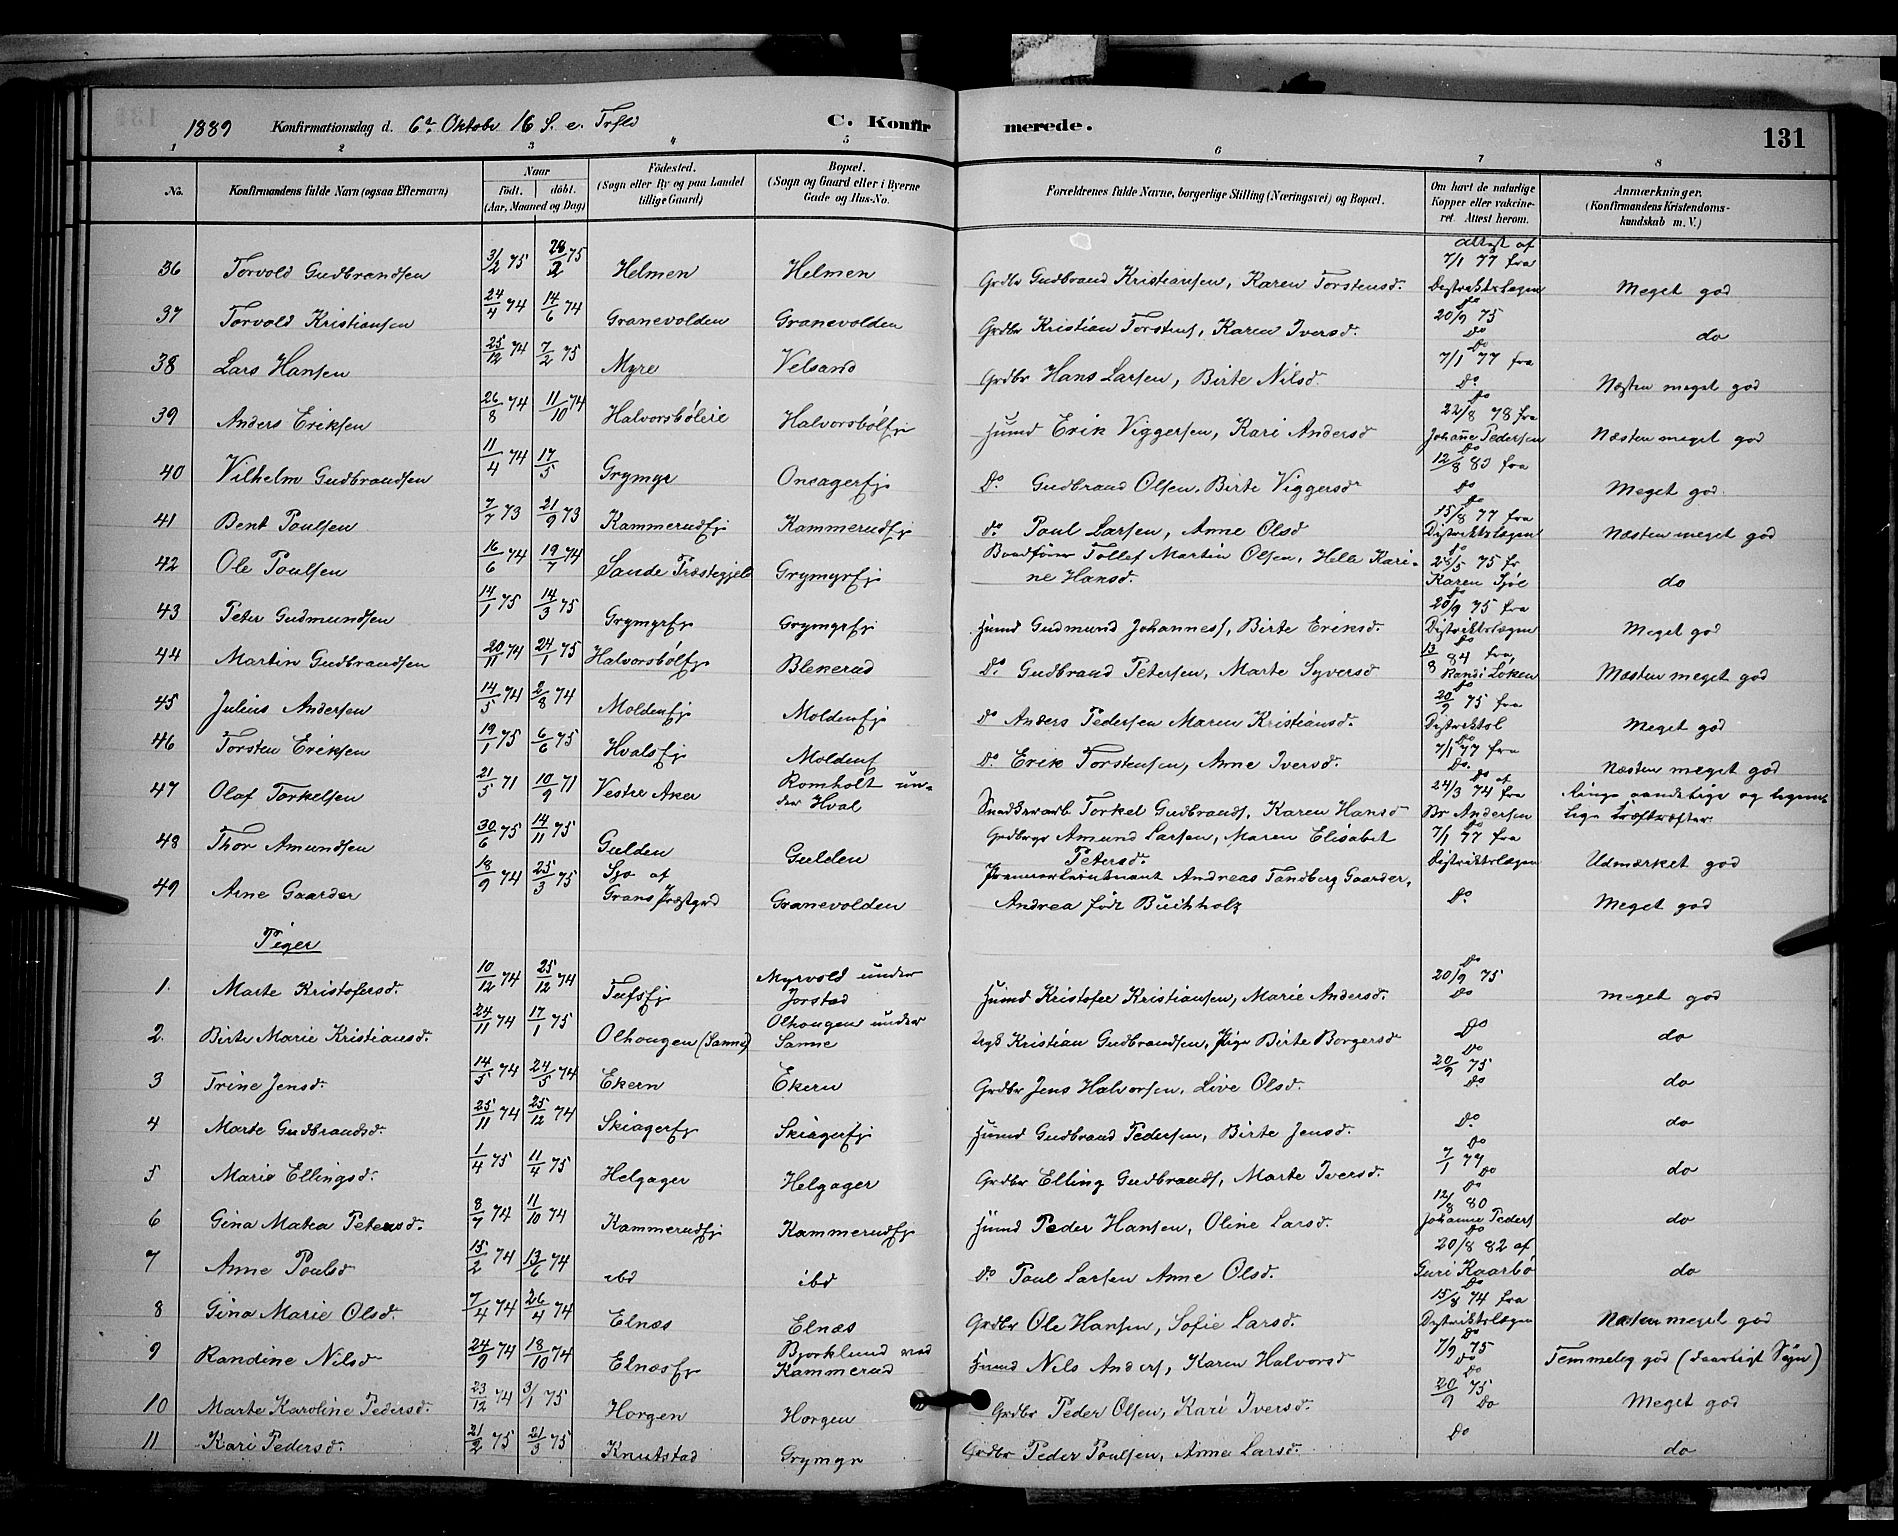 1889 Konfirmationsdag d. 6te Oktobr 16 S. e. Trfld C. Konfirmerede. 131
1 2 3 4 5 6 7 8
No. Konfirmandens fulde Navn (ogsaa Efternavn) Naar født. døbt. (Aar, Maaned og Dag) Födested. (Sogn eller By og paa Landet tillige Gaard) Bopæl. (Sogn og Gaard eller i Byerne Gade og Hus-No. Forældrenes fulde Navne, borgerlige Stilling (Næringsvei) og Bopæl. Om havt de naturlige Kopper eller vaccineret. Attest herom. Anmærkninger. (Konfirmandens Kristendomskundskab m. V.)
36 Torvold Gudbrandsen 3/2 75 28/2 75 Helmen Helmen Grdbr Gudbrand Kristiansen, Karen Torstensd. Attest af 7/1 77 fra Distriktslægen Meget god
37 Torvold Kristiansen 24/4 74 14/6 74 Granevolden Granevolden Grdbr Kristian Torstens, Karen Iversd. Do 20/9 75 Do do
38 Lars Hansen 25/12 74 7/2 75 Myre Velsand Grdbr Hans Larsen, Birte Nilsd. Do 7/1 77 fra Do Næsten meget god
39 Anders Eriksen 26/8 74 11/10 74 Halvorsböleie Halvorsbölfj Husmd Erik Viggersen, Kari Andersd Do 22/8 78 fra Johanne Pedersen Næsten meget god
40 Vilhelm Gudbrandsen 11/4 74 17/5 Grymyr Onsagerfj Do Gudbrand Olsen, Birte Viggersd Do 12/8 83 fra Do Meget god.
41 Bent Poulsen 2/7 73 21/9 73 Kammerudfj Kammerudfj do Poul Larsen, Anne Olsd Do 15/8 77 fra Distriktslægen Næsten meget god
42 Ole Poulsen 16/6 74 19/7 74 Sande Præstegjeld Grymyrfj Baadförer Tollef Martin Olsen, Hella Karine Hansd. Do 25/5 75 fr Karen Sjöe do
43 Peter Gudmundsen 14/1 75 14/3 75 Grymyrfj Grymyrfj Husmd Gudmund Johanness, Birte Eriksd. Do 20/9 75 fra Distriktslægen Meget god
44 Martin Gudbrandsen 20/11 74 24/1 75 Halvorsbölfj Blekerud Do Gudbrand Petersen, Marte Syversd Do 13/8 84 fra Randi Loken Næsten meget god
45 Julius Andersen 14/5 74 2/8 74 Moldenfj Moldenfj Do Anders Pedersen Maren Kristiansd. Do 20/9 75 fra Distriktsl Meget god
46 Torsten Eriksen 19/1 75 6/6 75 Hvalsfj Moldenf Do Erik Torstensen, Anne Iversd. Do 7/1 77 fra Do. Næsten meget god
47 Olaf Torkelsen 21/5 71 10/9 71 Vestre Aker Romholt under Hval Snedkerarb Torkel Gudbrands, Karen Hansd Do af 24/3 74 fra Br Andersen
48 Thor Amundsen 30/6 75 14/11 75 Gulden Gulden Grdbrgr Amund Larsen, Maren Elisabet Petersd. Do 7/1 77 fra Distriktslægen Udmærket god
49 Arne Gaarder 18/9 74 25/3 75 Sjo af Grans Prestgrd Granevolden Premierleieutnant Andreas Tandberg Gaarder, Andrea född Buchholz Do Meget god
Piger
1. Marte Kristofersd. 10/12 74 25/12 74 Tufsfj Myrvold under Jorstad Husmd Kristofer Kristiansen, Marie Andersd. Do 20/9 75 Do meget god
2. Birte Marie Kristiansd. 24/11 74 17/1 75 Olhougen (Sanne) Olhougen under Sanne Ugk Kristian Gudbrandsen, Pige Birte Borgersd Do do
3 Trine Jensd. 14/5 74 24/5 74 Ekern Ekern Grdbr Jens Halvorsen, Live Olsd. Do 20/9 75 Do do
4 Marte Gudbrandsd. 25/11 74 25/12 74 Skiagerfj Skiagerfj Husmd Gudbrand Pedersen, Birte Jensd. Do. do
5 Marie Ellingsd. 1/4 75 11/4 75 Helgager Helgager Grdbr Elling Gudbrands, Marte Iversd. Do 7/1 79 Do do
6 Gina Matea Petersd. 8/7 74 11/10 74 Kammerudfj Kammerudfj Husmd Peder Hansen, Oline Larsd. Do 12/8 80 Johanne Peders do
7 Anne Poulsd 15/2 74 13/6 74 ibd ibd Do Poul Larsen Anne Olsd. Do 20/8 82 af Guri Kaarbö do
8 Gina Marie Olsd. 7/4 74 26/4 74 Elnæs Elnæs Grdbr Ole Hansen, Sofie Larsd. Do 15/8 74 fra Distriktslægen Næsten meget god
9 Randine Nilsd 24/9 74 18/10 74 Elnæsfj Bjorklund ved Kammerud Husmd Nils Anders, Karen Halvorsd Do 7/9 75 Do Temmeleg god (daarligt Syn)
10 Marte Karoline Pedersd. 23/12 74 3/1 75 Horgen Horgen Grdbr Peder Olsen, Kari Iversd. Do 20/9 75 Do Meget god
11 Kari Pedersd. 21/2 75 21/3 75 Knutstad Grymyr Grdbr Peder Poulsen, Anne Larsd. Do do